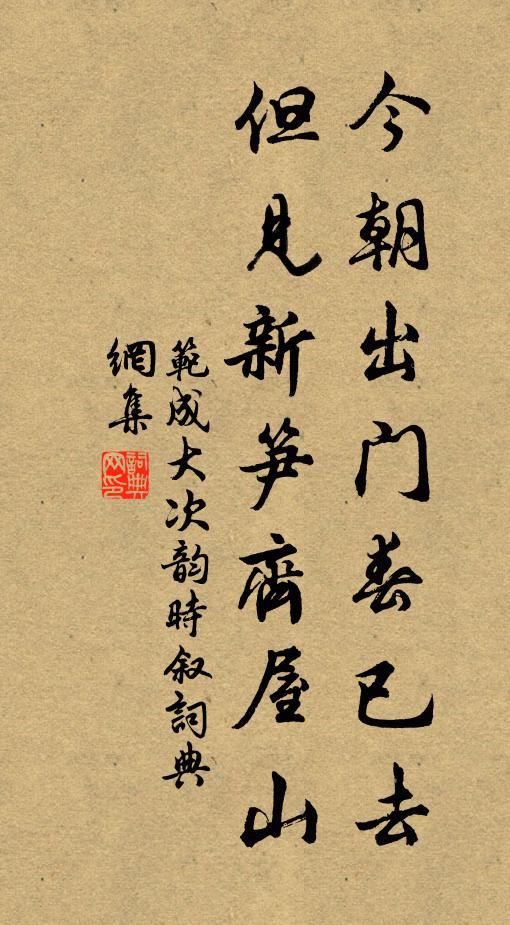 今朝出门春已去
但見新笋齊屋山
範成大次韵時叙詞典
網集
詞典
网印